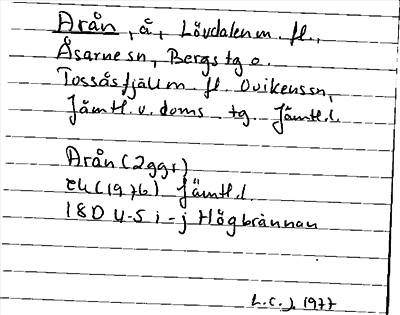 Arån, å, Lövdalen m. fl.,
Åsarne sn, Bergs tg o.
Tossåsfjäll m. fl. Ovikens sn,
Jämtl. v. doms. tg Jämtl. l.
Arån (2ggr)
ek (1976) Jämtl. l.
18D 4-5 i-j Högbrännan
L.C.J. 1977